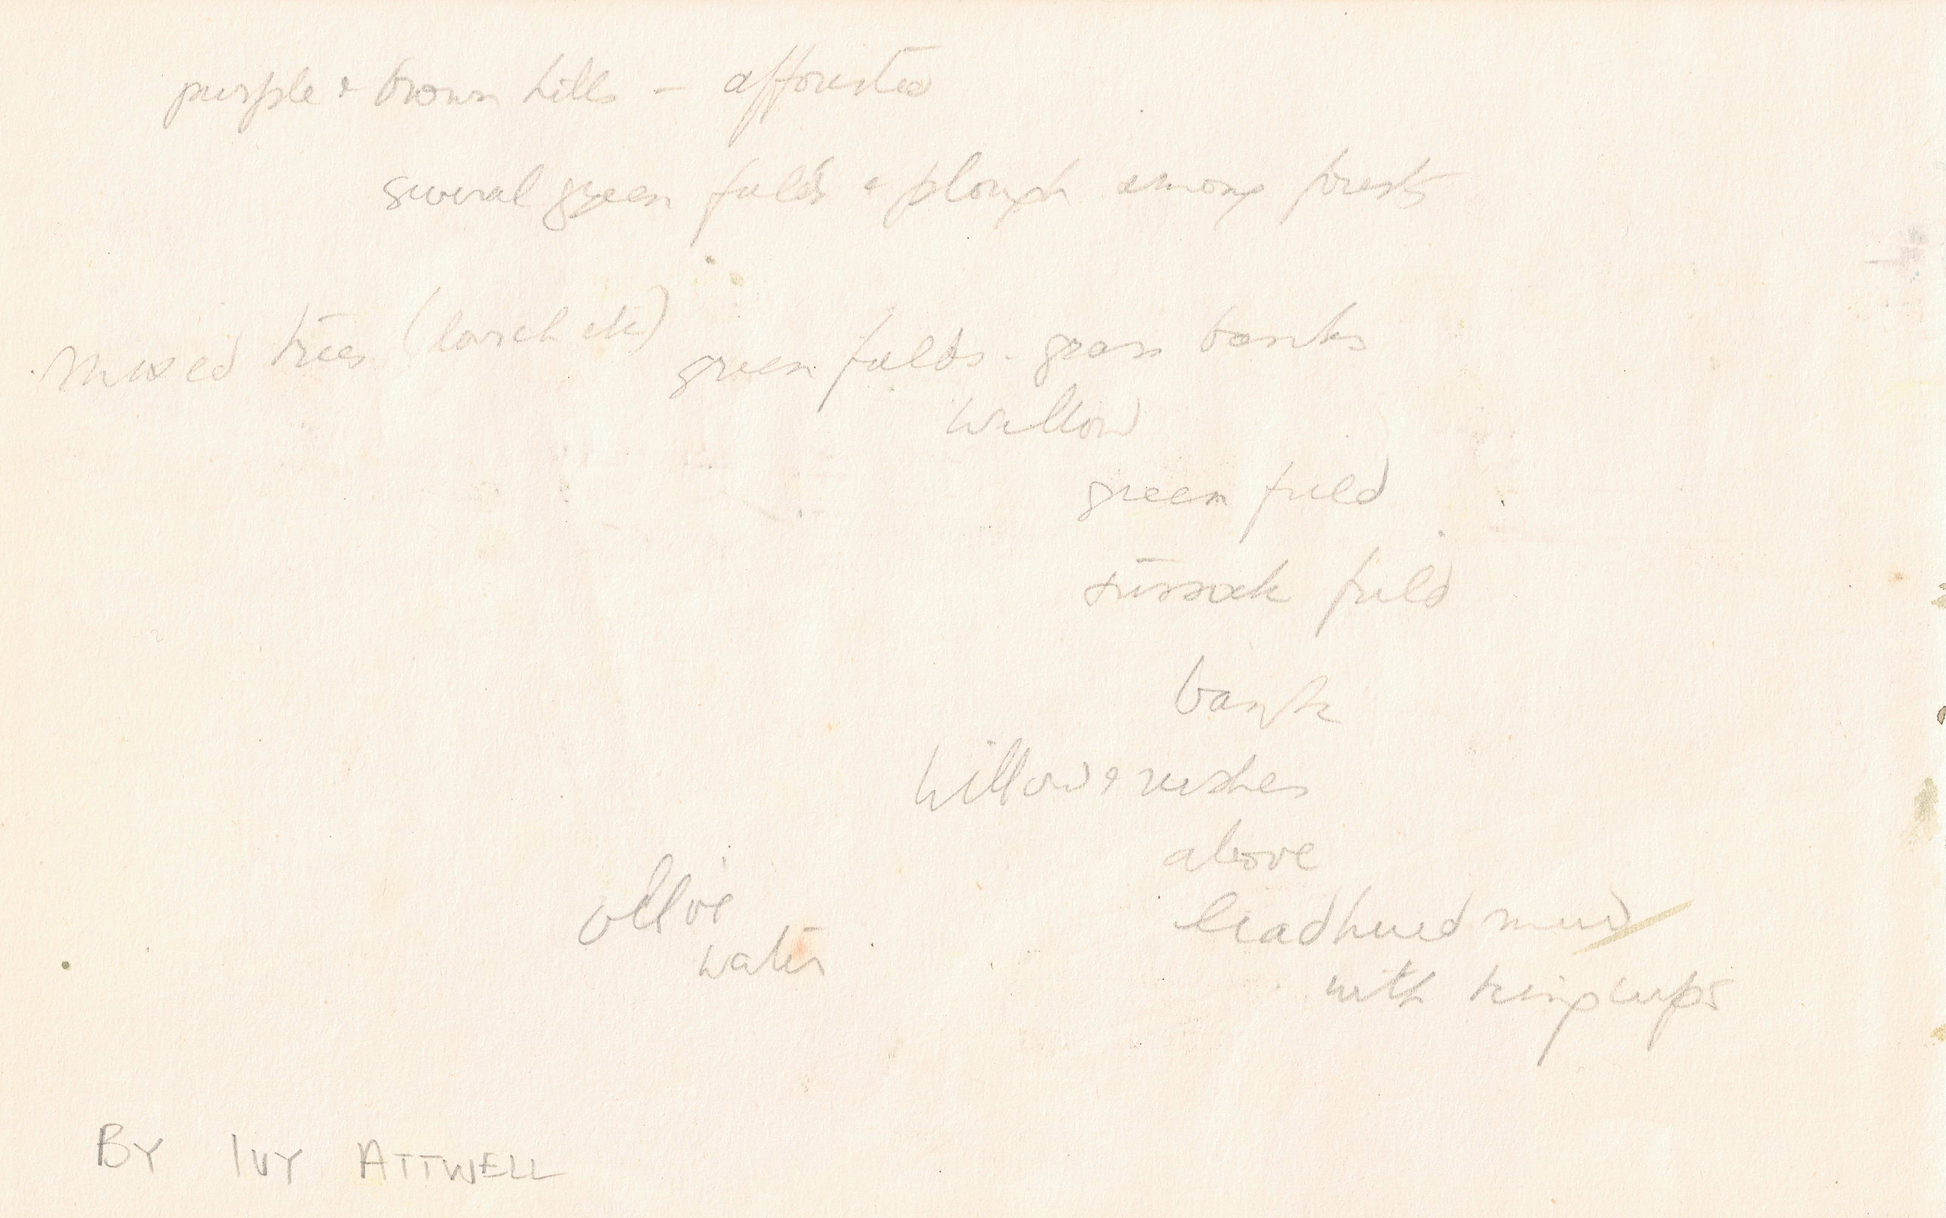 purple & brown hills – afforested
several green fields & plough among forests
mixed trees (larch etc)
green fields - grass banks
willow
green field
tussock field
bank
willow & rushes
above
olive
water
leadhued mud
with kingcups
BY IVY ATTWELL